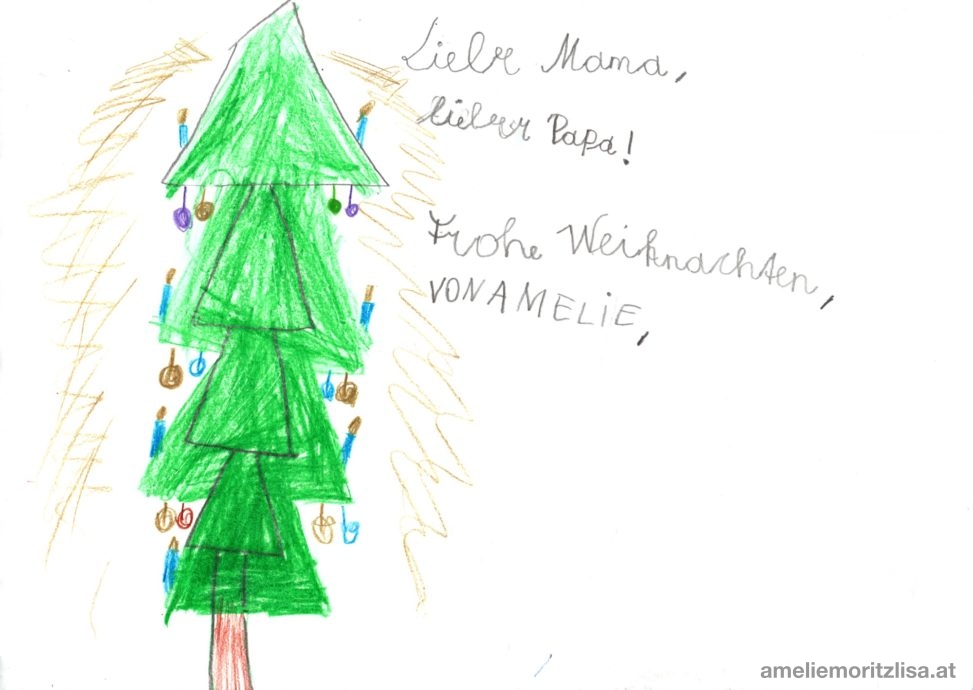 Liebe Mama,
lieber Papa!
Frohe Weihnachten,
VON AMELIE,
ameliemoritzlisa.at